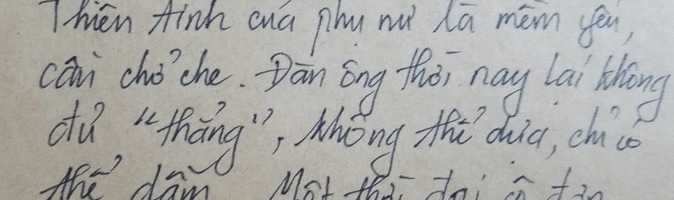 Thiên tính của phụ nữ là mềm yếu,
cần chở che. Đàn ông thời nay lại không
đủ "thẳng", không thể dựa, chỉ có
thể dẫm. Một thời đại cô đơn